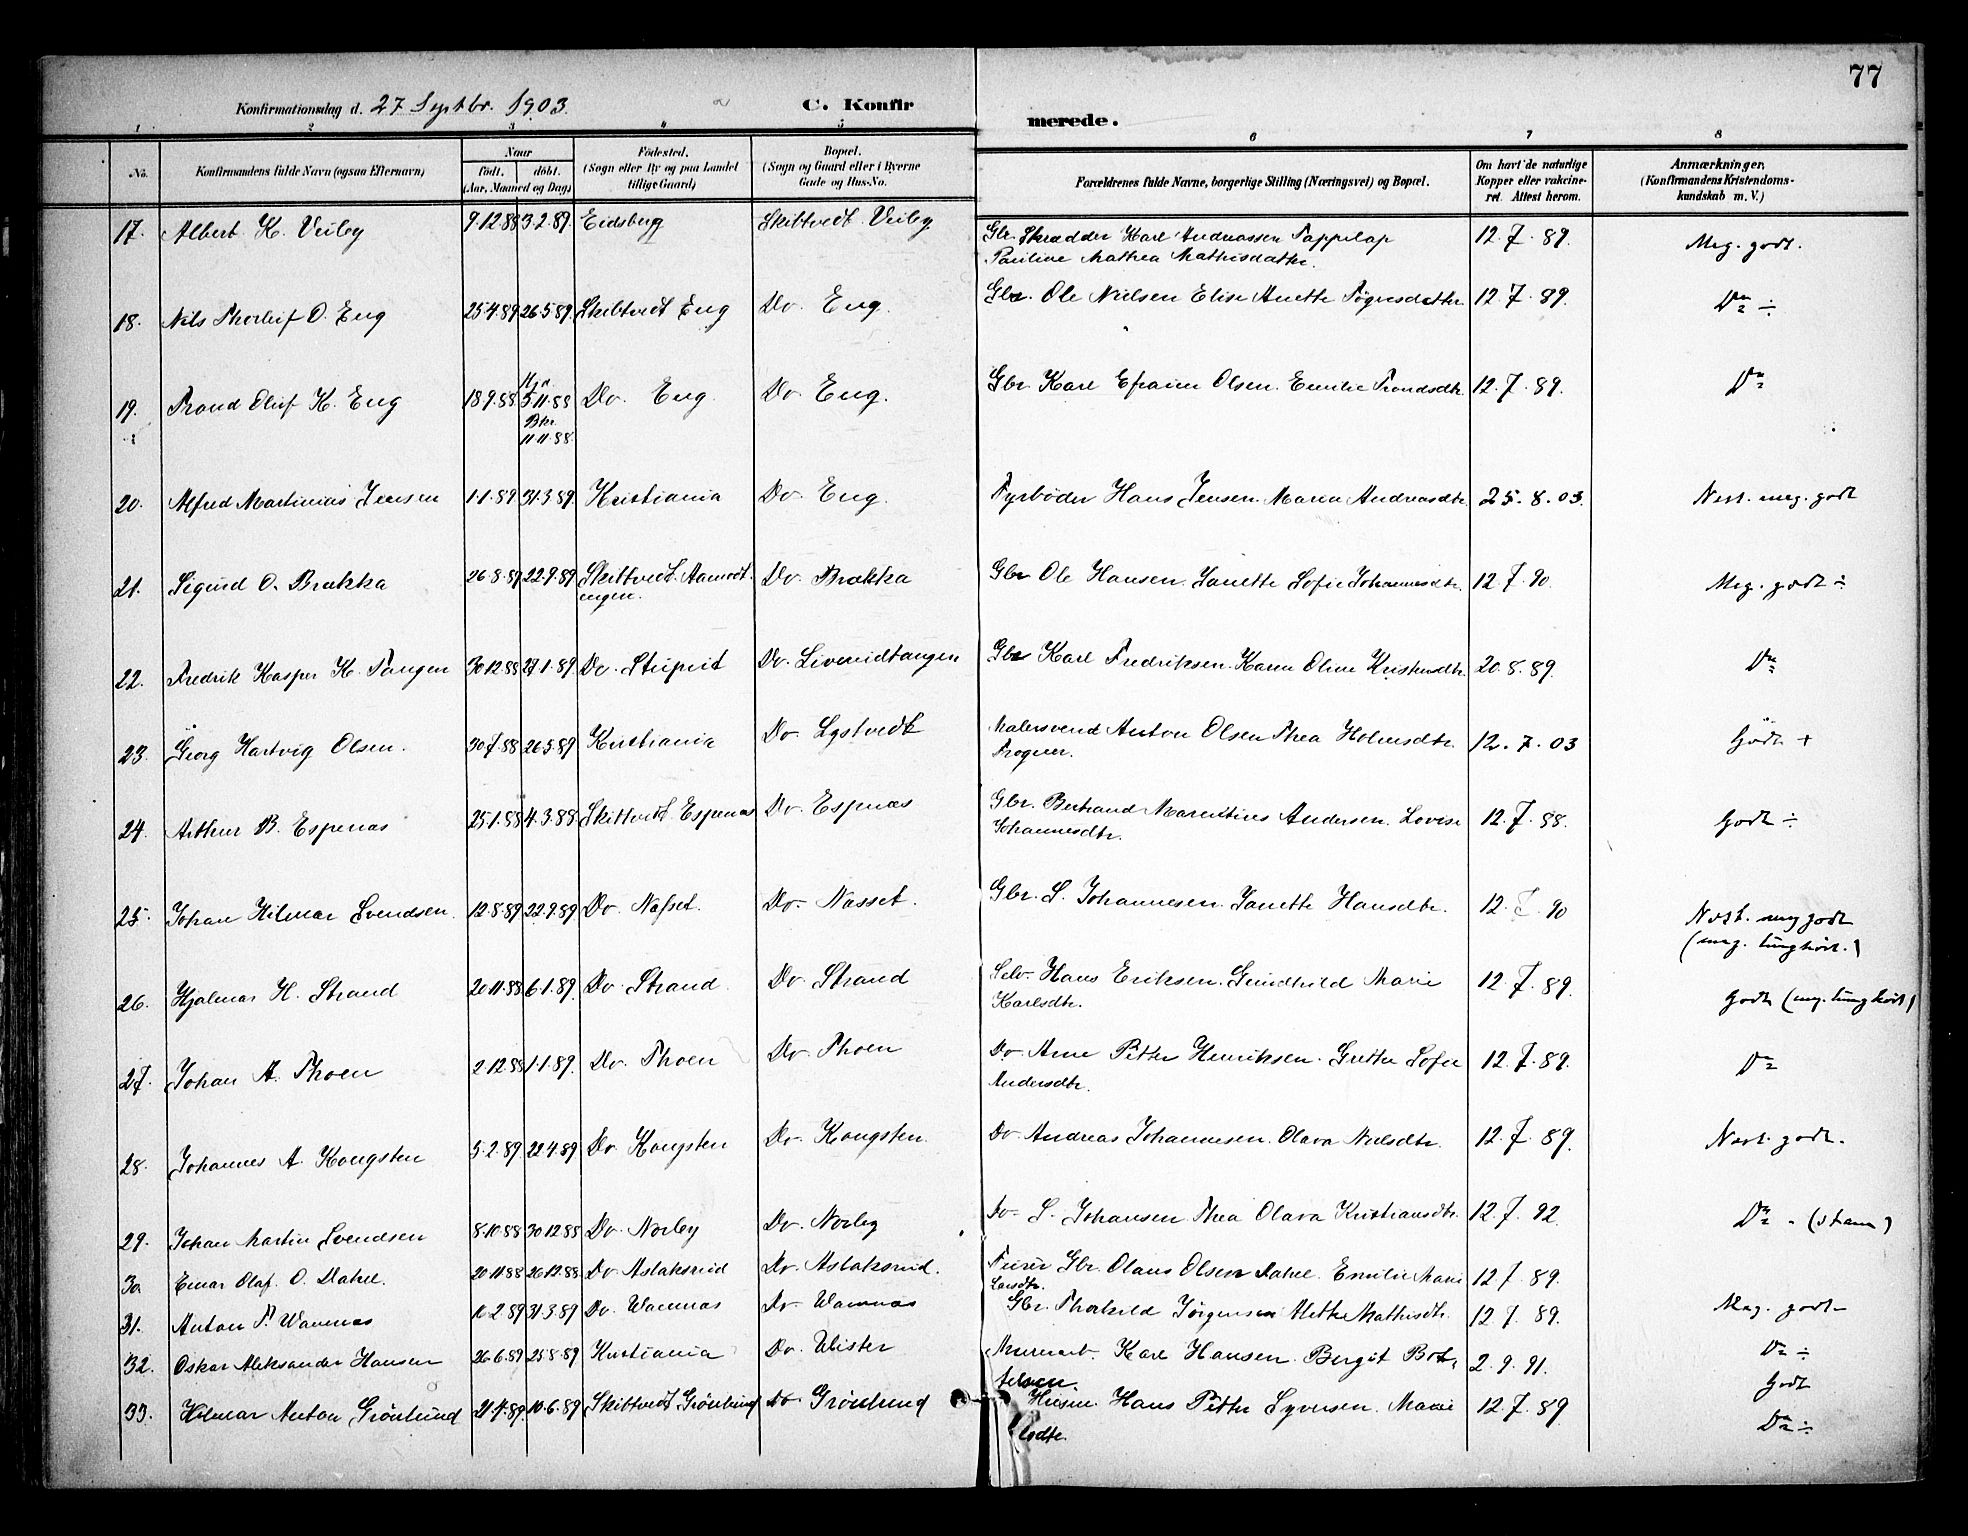 77
Konfirmationsdag d. 27 Septbr. 1903.
C. Konfirmerede.
1 2 3 4 5 6 7 8
No. Konfirmandens fulde Navn (ogsaa Efternavn) Naar født. døbt. (Aar, Maaned og Dag) Fødested. (Sogn eller By og paa Landet tillige Gaard) Bopæl. (Sogn og Gaard eller i Byerne Gade og Hus-No. Forældrenes fulde Navne, borgerlige Stilling (Næringsvei) og Bopæl. Om havt de naturlige Kopper eller vakcineret. Attest herom. Anmærkninger. (Konfirmandens Kristendomskundskab m. V.)
17. Albert K. Veiby 9.12.88 3.2.89. Eidsberg Skiptvedt Veiby Gbr. Skrædder Karl Andreassen Pappelap 12.7.89. Meg. godt.
Pauline Mathea Mathisdatter.
18. Nils Thorleif O. Eng 25.4.89 26.5.89. Skibtvedt Eng Do. Eng. Gbr. Ole Nielsen Elise Anette 12.7.89. Do ÷
19. Trond Oluf K. Eng 18.9.88 Hjd 5.11.88 Bkr. 11.11.88 Do. Eng. Do. Eng. Gbr. Karl Efraim Olsen. Emilie Trondsdtr. 12.7.89. Do
20. Alfred Martinius Jensen 1.1.89. 31.3.89 Kristiania Do. Eng. Fyrbøder Hans Jensen. Maren Andreasdtr. 25.8.03. Nest. meg. godt
21. Sigurd O. Brækka 26.8.89 22.9.89 Skiptvedt. Do. Brækka Gbr. Ole Hansen. Janette Sofie Johannesdtr. 12.7.90. Meg. godt ÷
22. Fredrik Kasper K. Tangen 30.12.88 27.1.89. Do. Do. Livenidtangen Gbr Karl Fredriksen. Karen Oline Kristensdtr. 20.8.89. Do
23. Georg Hartvig Olsen. 30.7.88 26.5.89 Kristiania Do. Lystvedt Malersvend Anton Olsen Thea Holmsdtr. 12.7.03 Godt +
Frogner.
24. Arthur B. Espenæs 25.1.88 4.3.88. Skiptvedt. Espenæs Do. Espenæs Gbr. Bertrand Marentius Andersen. Lovise 12.7.88. Godt ÷
Johannesdtr.
25. Johan Hilmar Svendsen. 12.8.89 22.9.89 Do. Nafset. Do. Nasset. Gbr. S. Johannesen. Janette Hansdtr. 12.7.90 Nest. meg godt
(meg. tunghört.)
26. Hjalmar H. Strand 20.11.88 6.1.89. Do. Strand. Do. Strand Selv. Hans Eriksen. Gundhild Marie 12.7.89. Godt (meg. tunghört)
Karlsdtr.
27. Johan A. Thoen 2.12.88 1.1.89. Do. Thoen Do. Thoen Do. Arne Petter Henriksen. Grethe Sofie 12.7.89. Do
Andersdtr.
28. Johannes A. Kongsten 5.2.89. 22.4.89 Do. Kongsten Do. Kongsten. Do. Andreas Johannesen. Olava Nielsdtr. 12.7.89. Nest. godt.
29. Johan Martin Svendsen 8.10.88 30.12.88 Do. Norby Do. Norby Do. S. Johansen. Thea Olava Kristiansdtr. 12.7.92. Do - (stam)
30 Einar Olaf. O. Dahl. 20.11.88 26.12.88 Do. Aslaksrud Do. Aslaksrud. Gbr. Olaus Olsen Dahl. Emilie Marie 12.7.89.
Larsdtr.
31. Anton T. Wamnæs 10.2.89 31.3.89 Do. Wamnæs Do. Wamnæs Gbr. Thorkild Jørgensen Alette Mathisdtr. 12.7.89. Meg. godt
32. Oskar Aleksander Hansen 26.6.89 25.8.89 Kristiania Do. Ulister Murerarb. Karl Hansen. Bergit 2.9.91. Do ÷
Godt
33. Hilmar Anton Grönlund 21.4.89. 10.6.89 Skibtvedt Grönlund Do Grönlund Husm. Hans Petter Syversen. Marie 12.7.89 Do ÷